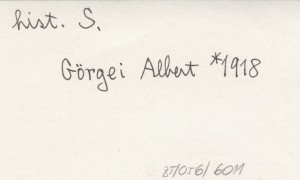 hist. S.
Görgei Albert *1918
BT/OT6/6011